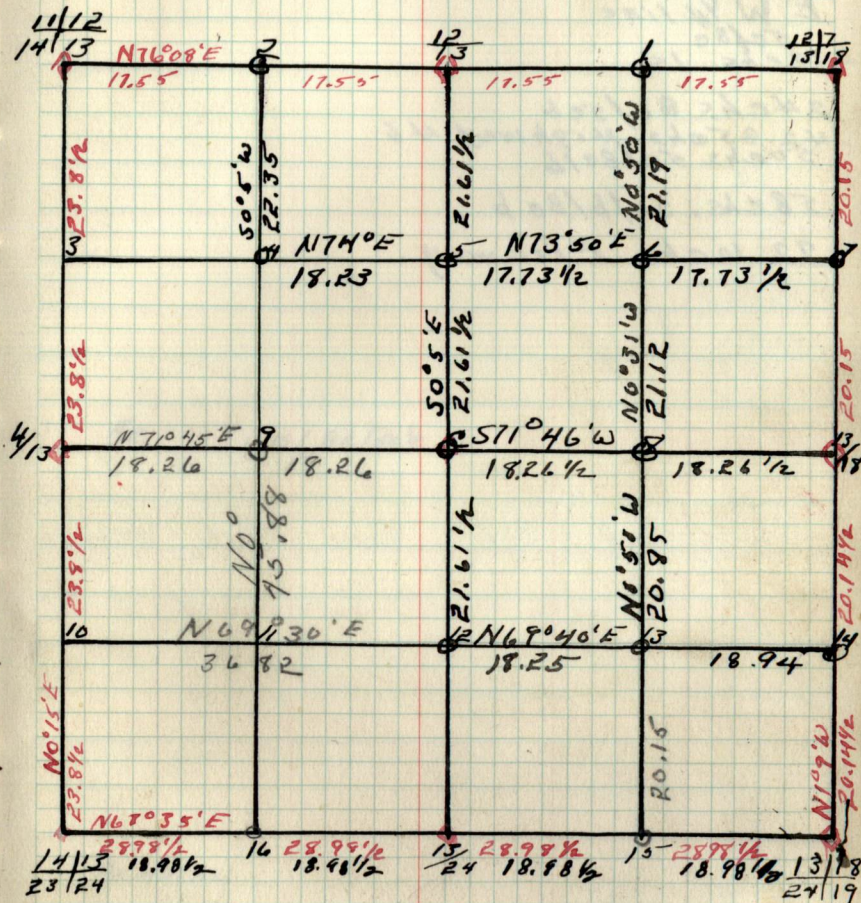 11|12 12 12|7
14|13 2 13 1 13|18
N76°08'E
17.55 17.55 17.55 17.55
23.8½ S0°5'W 22.35 21.61½ N0°50'W 21.19 20.15
3 4 N74°E 5 N73°50'E 6 7
18.23 17.73½ 17.73½
23.8½ S0°5'E 21.61½ N0°31'W 21.12 20.15
14/13 N71°45'E 9 C S71°46'W 13/18
18.26 18.26 18.26½ 18.26½
23.8½ N0° 45.88 21.61½ N0°50'W 20.85 20.14½
10 N69°30'E 11 12 N69°40'E 13 14
36 82 18.25 18.94
N0°15'E 23.8½ 20.15 N1°9'W 20.14½
N67°35'E
28.98½ 16 28.98½ 13 28.98½ 15 28.98½
14|13 18.98½ 18.98½ 24 18.98½ 18.98½ 13|18
23|24 24|19